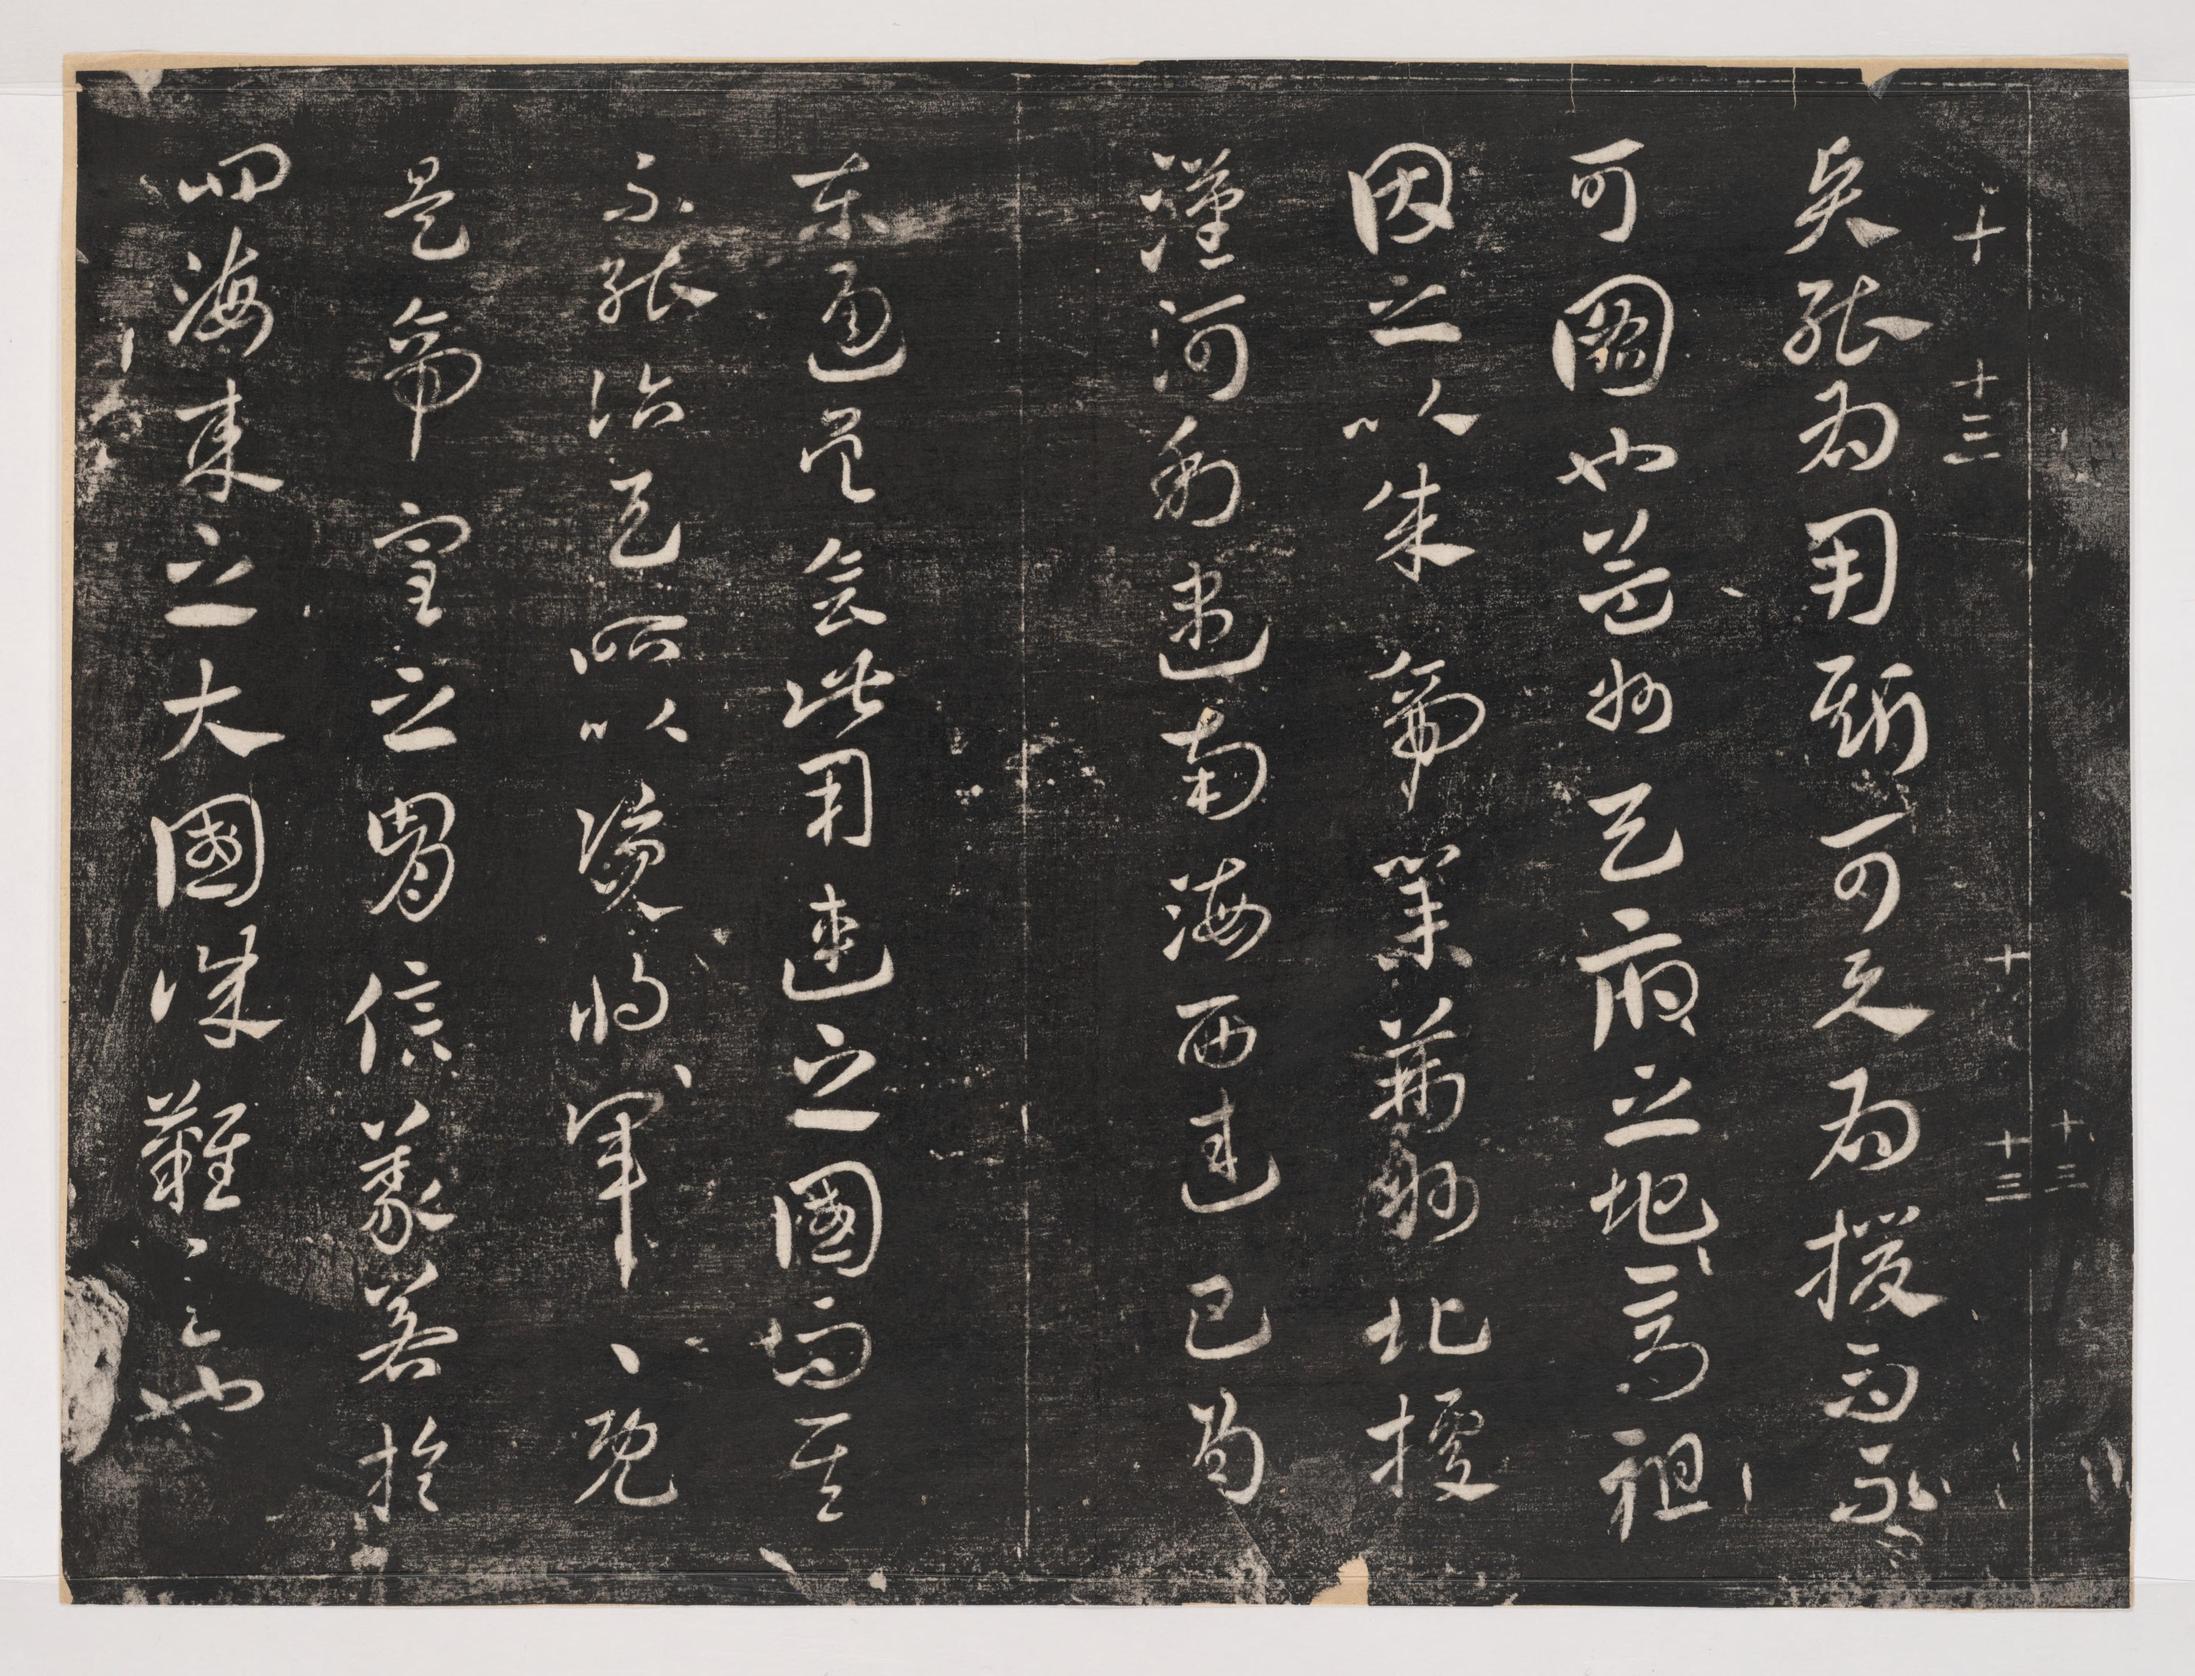 十 十三 十 十三 十三
矣能為用賢可為援而不
可圖也益州天府之地高祖
因之以成帝業荊州北據
漢河利盡南海西連巴蜀
東通吳會此用之國而其
不能治天所以資將軍既
是帝室之冑信義著於
四海東之大國誅難之也